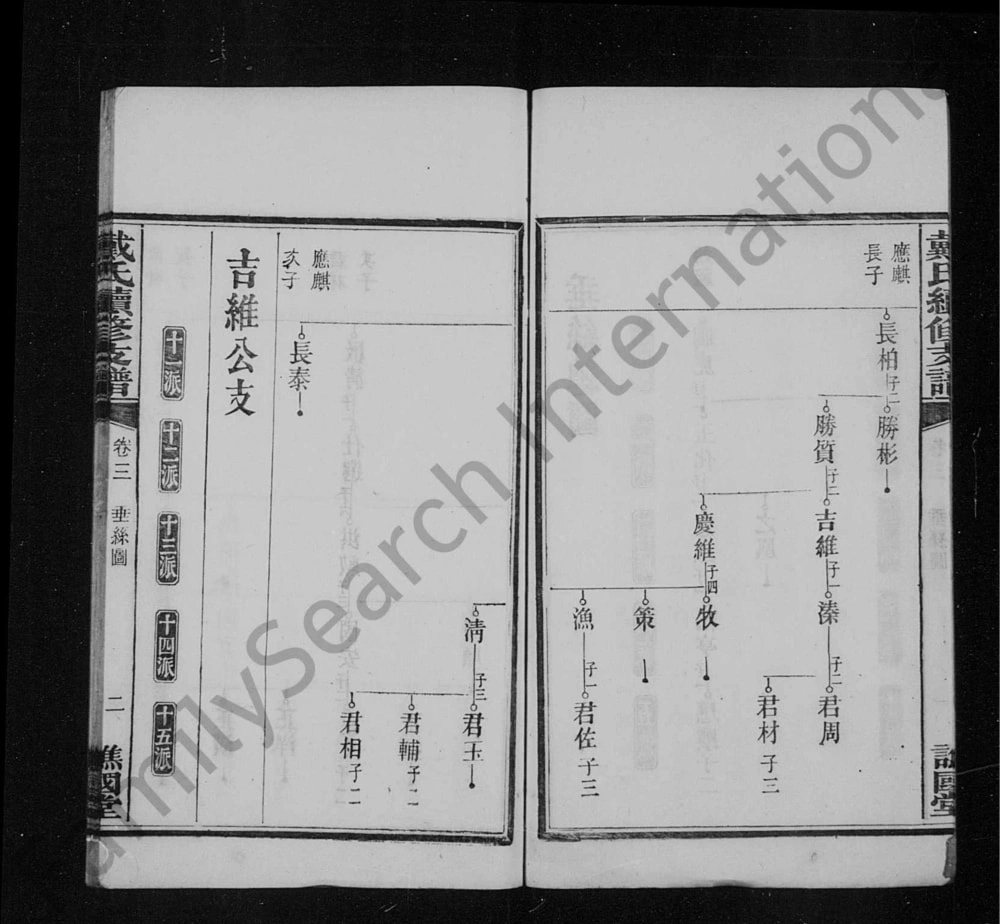 戴氏續修支譜
譙國堂
應麒
長子
長柏 子二
勝彬
勝質 子二
吉維 子一
溱 子二
君周
君材 子三
慶維 子四
牧
策
漁 子一
君佐 子三
清 子三
君玉
君輔 子二
君相 子二
應麒
次子
長泰
吉維公支
十一派
十二派
十三派
十四派
十五派
戴氏續修支譜
卷三
垂絲圖
二
譙國堂
FamilySearch International